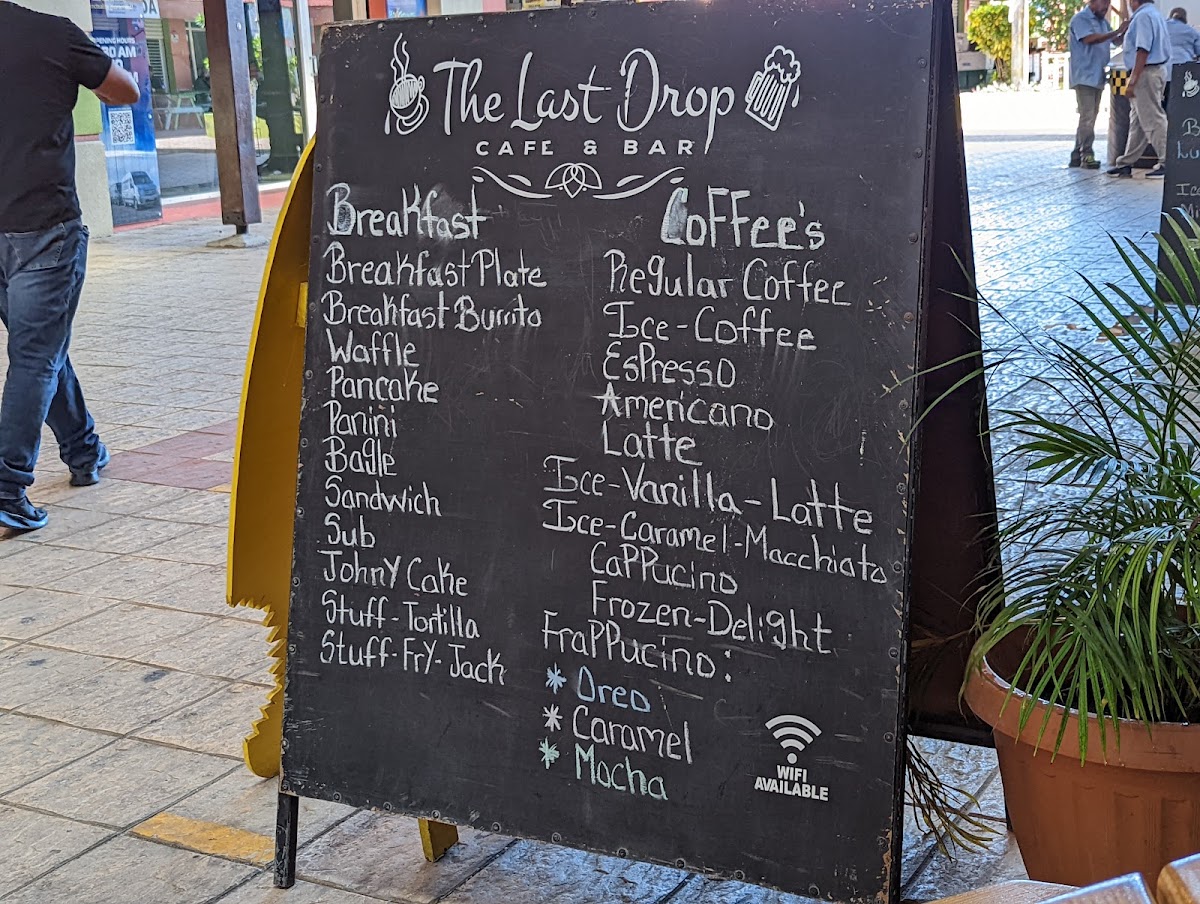 The Last Drop
CAFE & BAR
Breakfast
Breakfast Plate
Breakfast Burrito
Waffle
Pancake
Panini
Bagle
Sandwich
Sub
Johny Cake
Stuff-Tortilla
Stuff-Fry-Jack
Coffee's
Regular Coffee
Ice-Coffee
Espresso
Americano
Latte
Ice-Vanilla-Latte
Ice-Caramel-Macchiato
Cappucino
Frozen-Delight
Frappucino:
* Oreo
* Caramel
* Mocha
WIFI
AVAILABLE